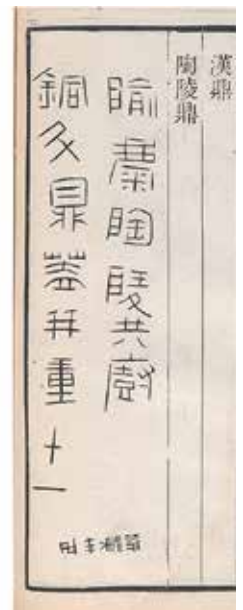 漢鼎
陶陵鼎
隃麋陶陵共廚
銅斗鼎蓋并重十一